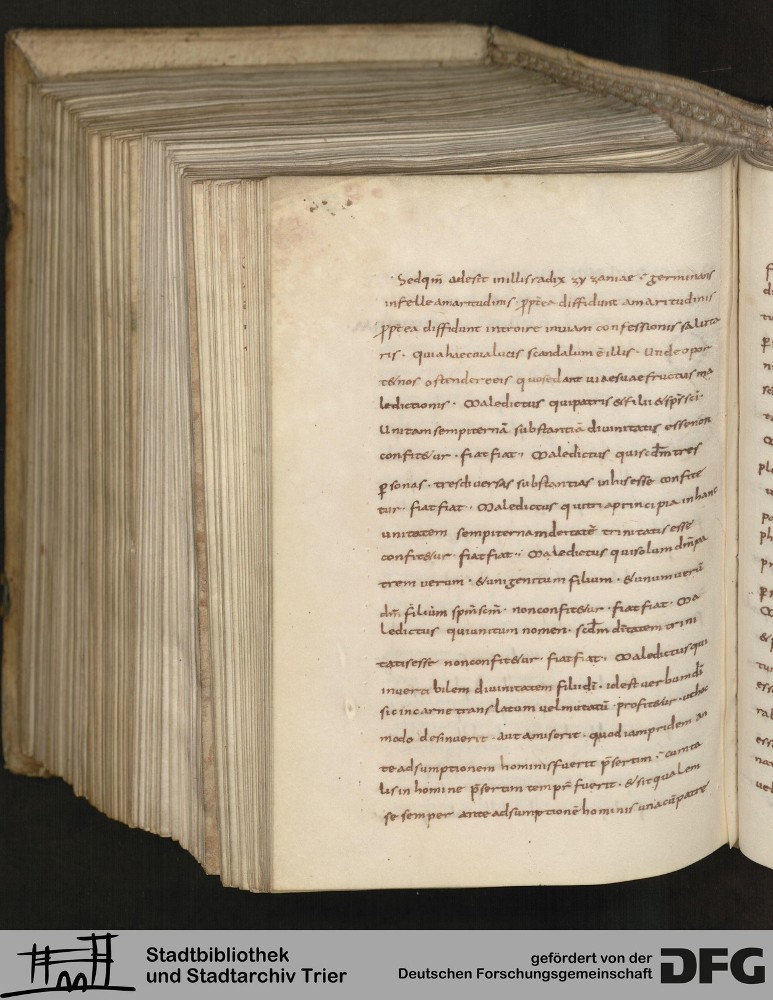 Sedqm̄ adest inillisradix zyzaniae · germinans
infelleamaritudinis · ꝓpt̄ea diffidunt amaritudinis
ꝓpt̄ea diffidunt introire inuiam confessionis saluta
ris · quiahaecuialucis scandalum ē illis · Undeopor
tetnos ostendereeis quosedant uiaesuaefructus ma
ledictionis · Maledictus quipatris &filii &sp̄s sc̄i ·
Unitamsempiternā substantiā diuinitatis essenon
confit&ur · fiatfiat · Maledictus quisc̄dm̄ tres
ꝑsonas · tresdiuersas substantias inhisesse confite
tur fiatfiat · Maledictus quitriaprincipia inhanc
unitatem sempiternamdeitatē trinitatis esse
confit&ur · fiatfiat · Maledictus quisolum dm̄pa
trem uerum · &unigenitum filium · &unumuerū
dm̄ filium spm̄scm̄ · nonconfit&ur · fiatfiat · Ma
ledictus quiunitum nomen · sc̄dm̄ dītatem trini
tatisesse nonconfit&ur · fiatfiat · Maledictusqui
inuerti bilem diuinitatem filiidī · idest uerbumdī
sicincarne translatum uelmutatū · profit&ur · uthoc
modo desinuerit · autamiserit · quodiampridem an
teadsumptionem hominisfuerit
lisin homine fuerit · &sitqualem
se semper anteadsumptionē hominis unacūpatre
Stadtbibliothek
und Stadtarchiv Trier
gefördert von der
Deutschen Forschungsgemeinschaft
DFG